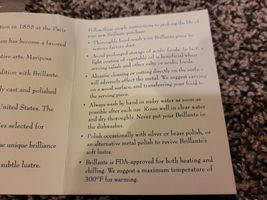 tion in 1855 at the Paris
um has become a favored
tive arts. Mariposa
dition with Brillante.
ly cast and polished
United States. The
es selected for
ne unique brilliance
subtle lustre.
Follow these simple instructions to prolong the life of
your new Brillante purchase.
• Thoroughly hand-wash your Brillante piece to
remove factory dust.
• Avoid prolonged storage of acidic foods. In fact, a
light coating of vegetable oil is beneficial when
serving salads and other salty or acidic foods.
• Abrasive cleaning or cutting directly on the surface
will adversely effect the metal. We suggest carving
on a wood surface, and transferring your food to
the serving piece.
• Always wash by hand in sudsy water as soon as
possible after each use. Rinse well in clear water
and dry thoroughly. Never put your Brillante in
the dishwasher.
• Polish occasionally with silver or brass polish, or
an alternative metal polish to revive Brillante's
soft lustre.
• Brillante is FDA-approved for both heating and
chilling. We suggest a maximum temperature of
300°F for warming.